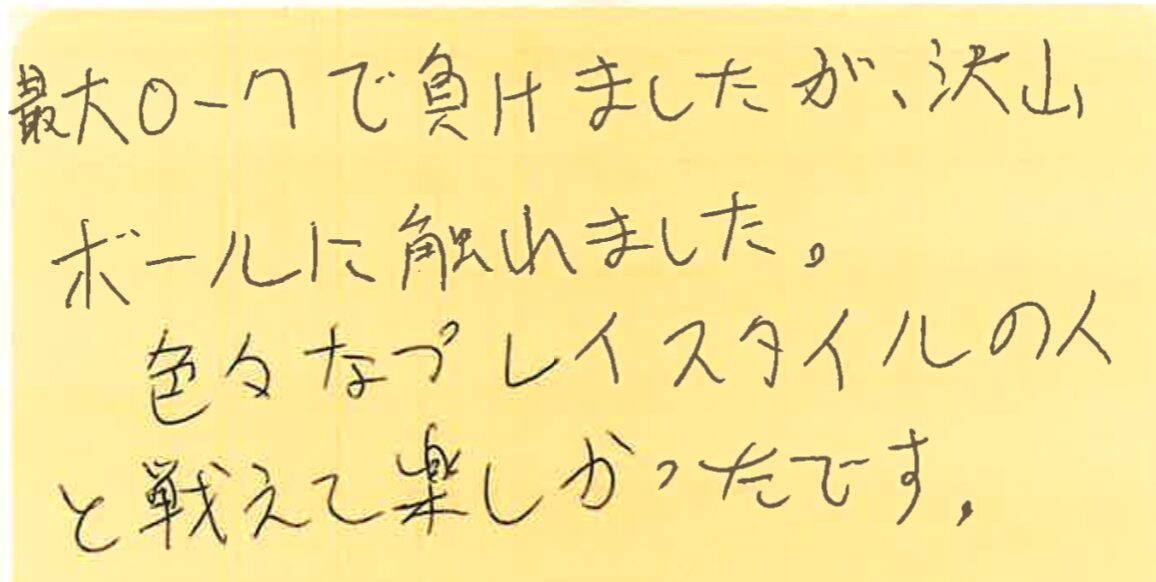 最大0-7で負けましたが、沢山
ボールに触れました。
色々なプレイスタイルの人
と戦えて楽しかったです。